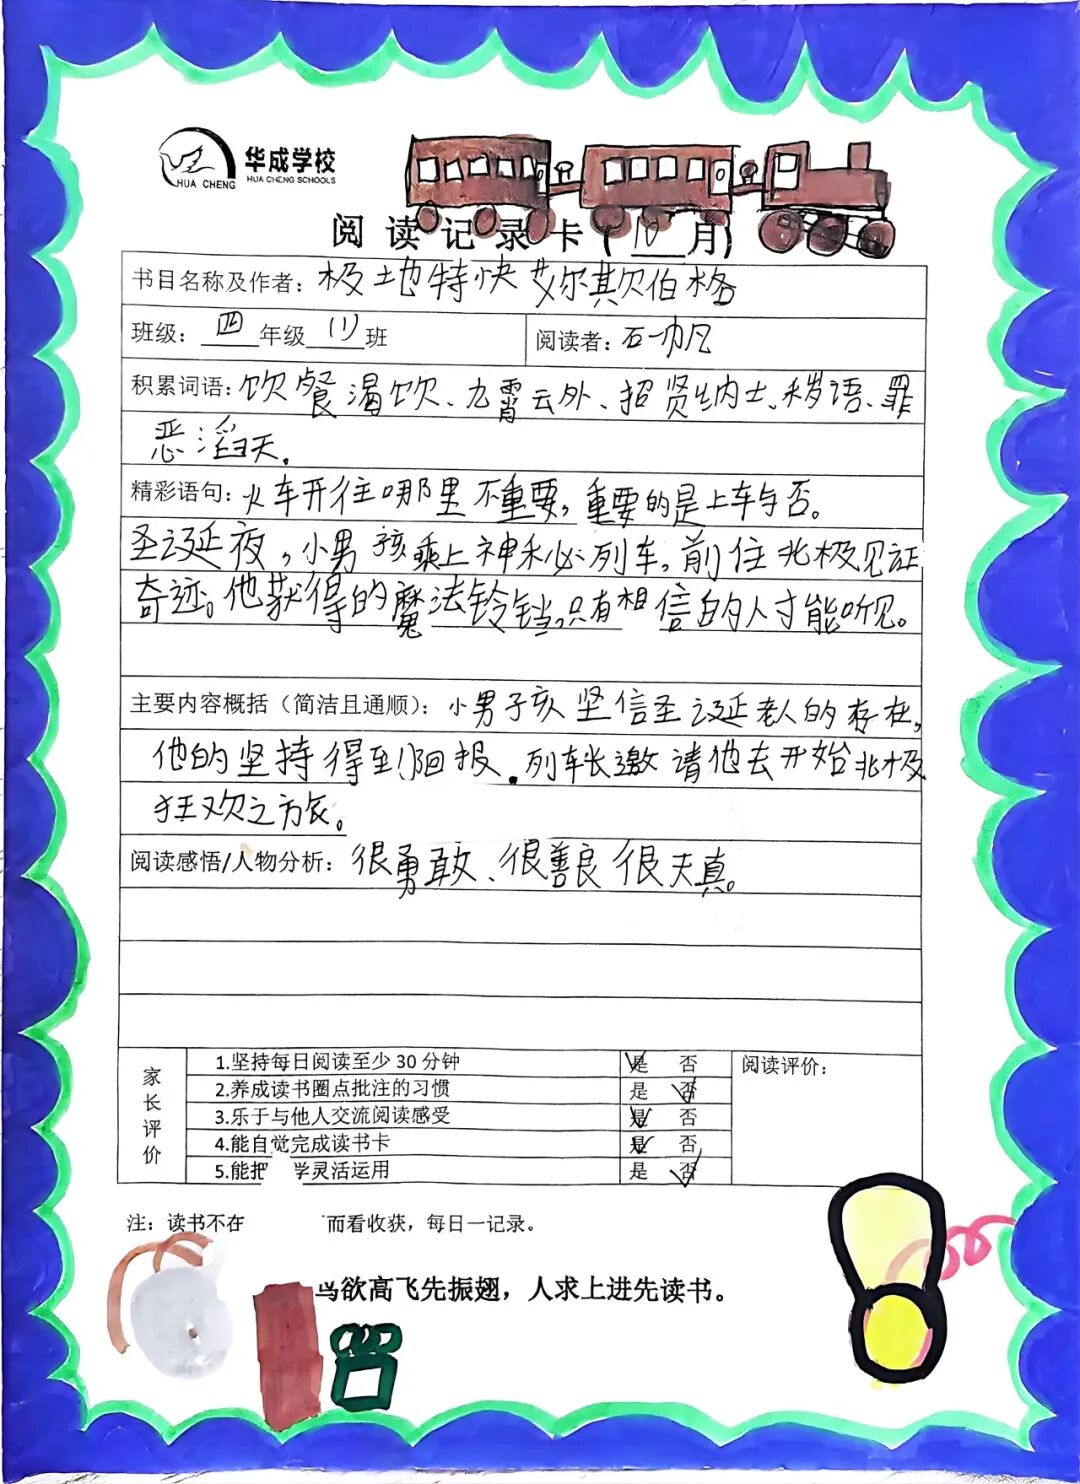 华成学校
HUA CHENG SCHOOLS
HUA CHENG
阅读记录卡(10月)
书目名称及作者：极地特快 艾尔斯伯格
班级：四年级(1)班 阅读者：石一帆
积累词语：饮餐渴饮、九霄云外、招贤纳士、秽语、罪
恶滔天.
精彩语句：火车开往哪里不重要，重要的是上车与否。
圣诞夜，小男孩乘上神秘列车，前往北极见证
奇迹。他获得的魔法铃铛，只有相信的人才能听见。
主要内容概括（简洁且通顺）：小男子孩坚信圣诞老人的存在，
他的坚持得到回报.列车长邀请他去开始北极
狂欢之旅。
阅读感悟/人物分析：很勇敢、很善良 很天真。
家长评价
1.坚持每日阅读至少30分钟 是 否
2.养成读书圈点批注的习惯 是 否
3.乐于与他人交流阅读感受 是 否
4.能自觉完成读书卡 是 否
5.能把 学灵活运用 是 否
阅读评价：
注：读书不在 而看收获，每日一记录。
鸟欲高飞先振翅，人求上进先读书。